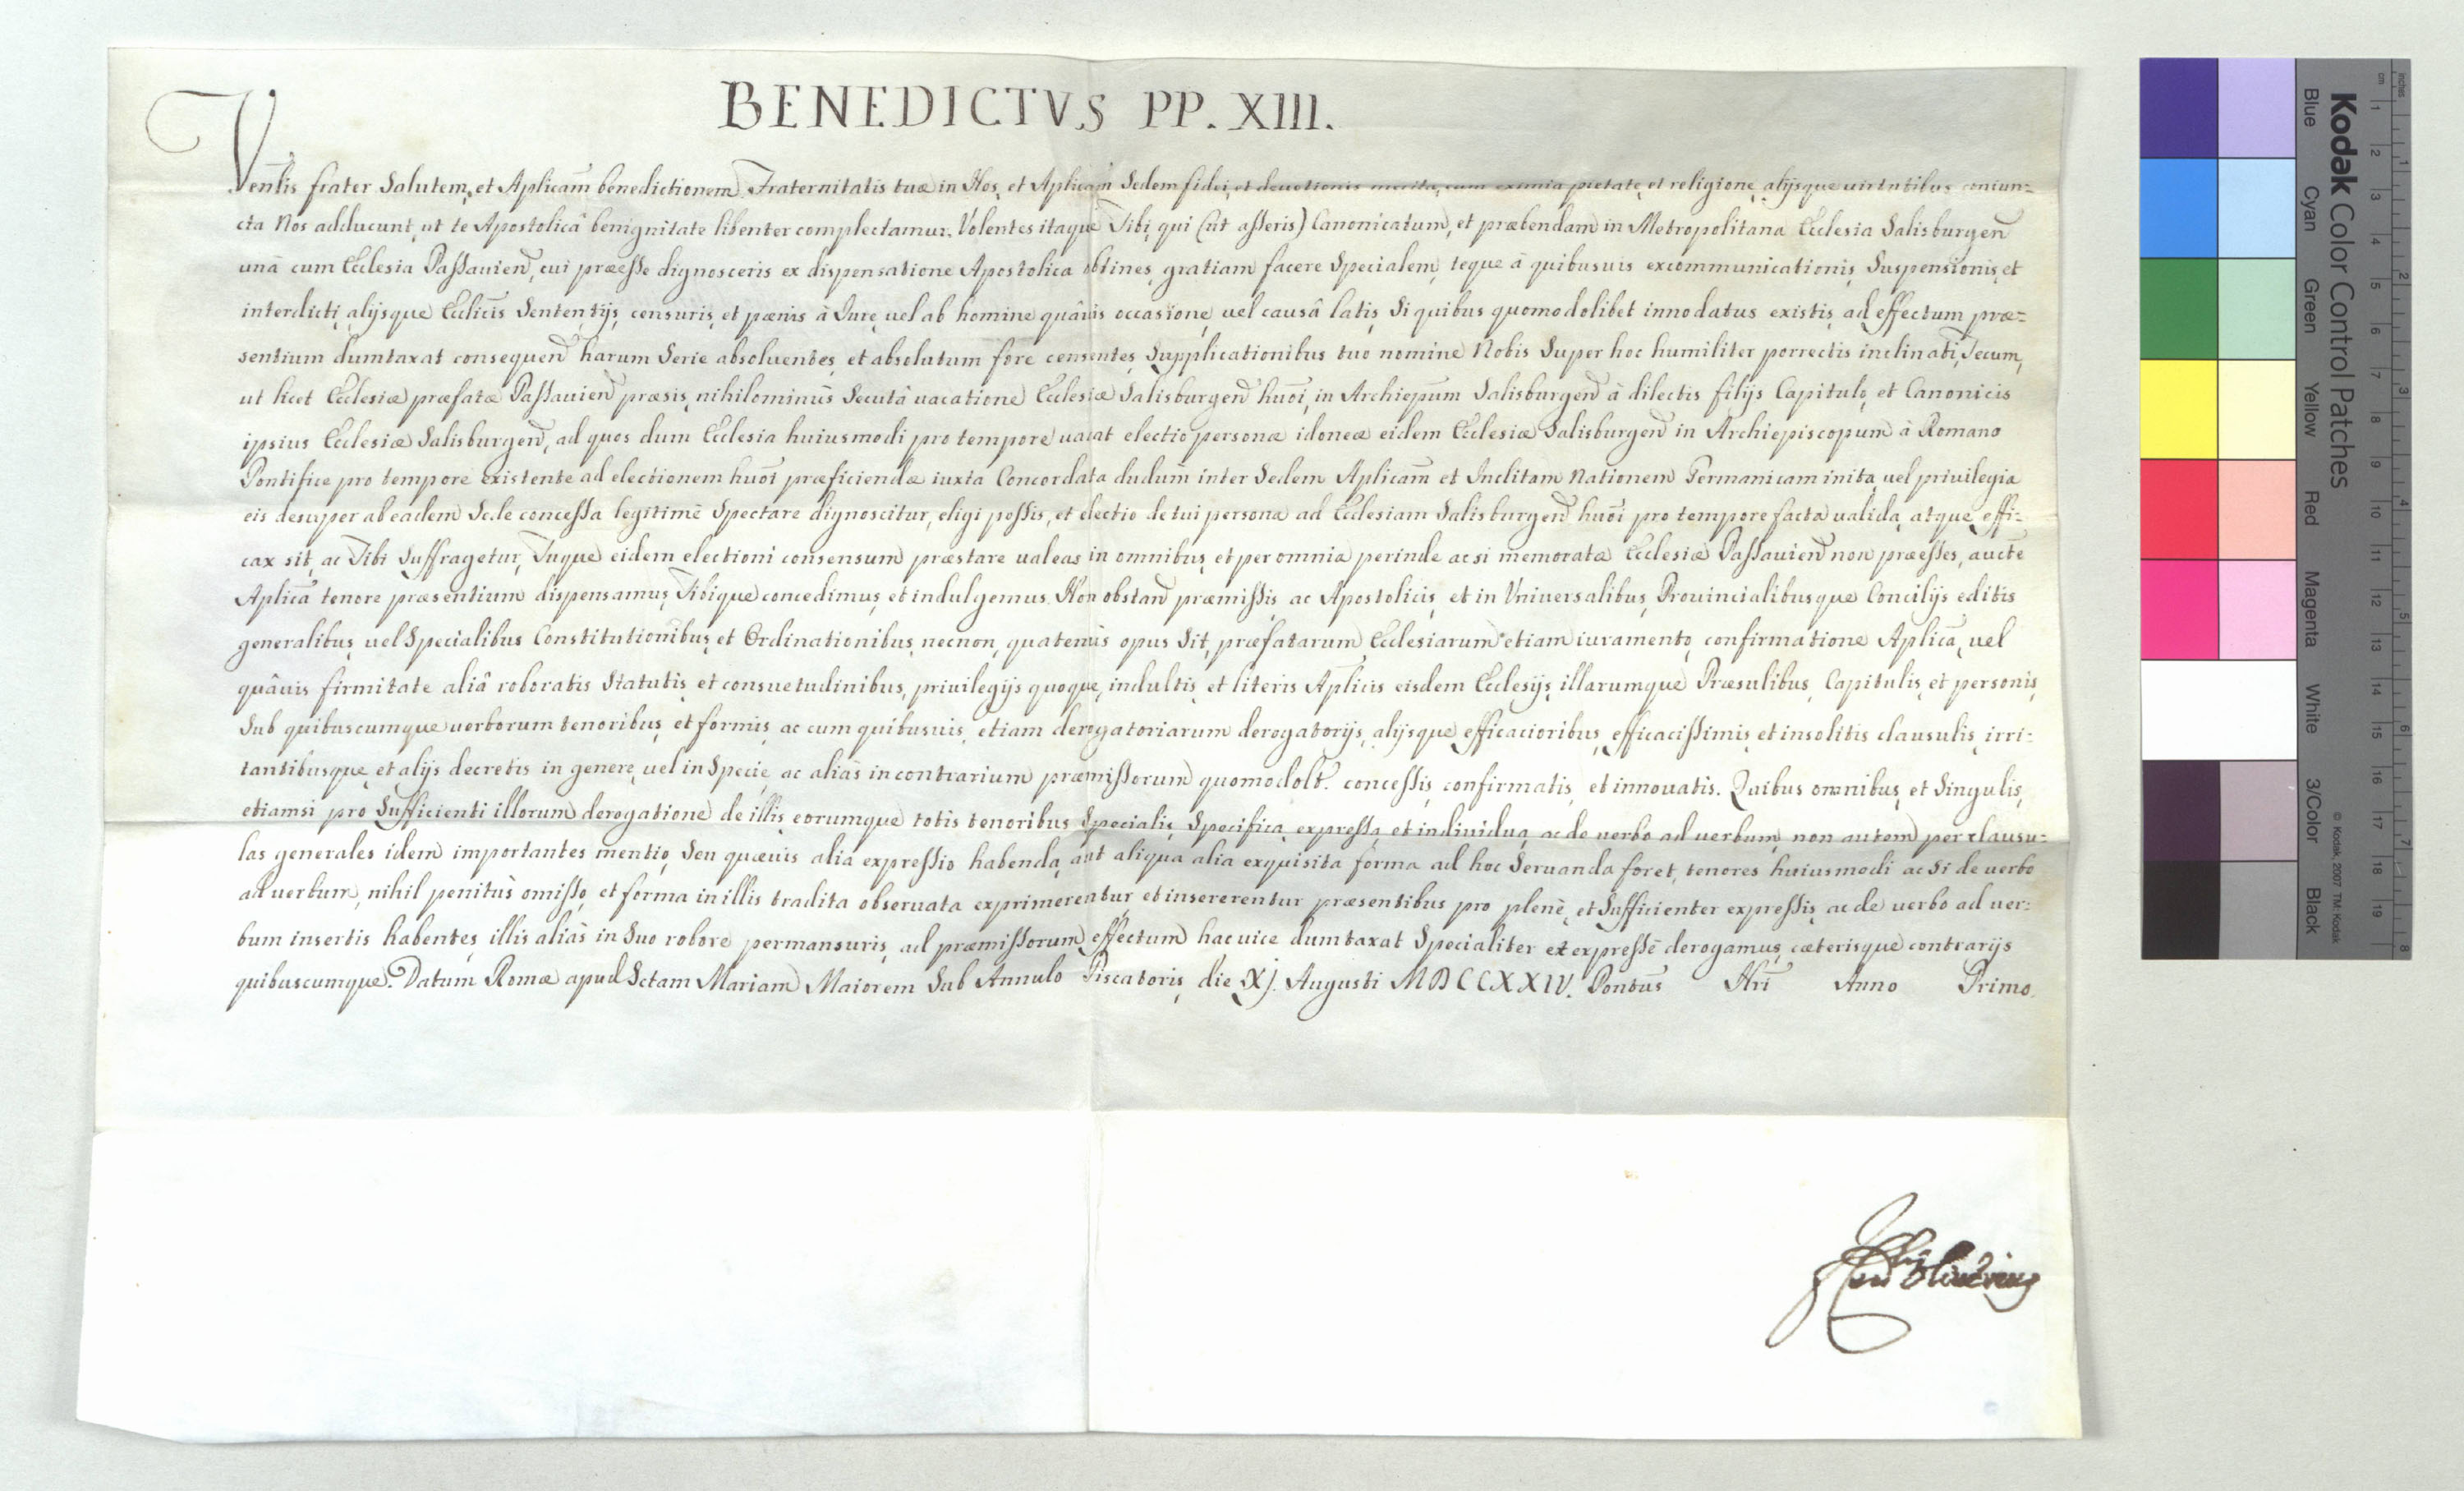 BENEDICTVS PP. XIII.
Venlis frater Salutem, et Aplicam benedictionem. Fraternitatis tuæ in Nos, et Aplicam Sedem fidei, et deuotionis merita, cum eximia pietate, et religione, alijsque uirtutibus coniun=
cta Nos adducunt, ut te Apostolicâ benignitate libenter complectamur. Volentes itaque Tibi, qui (ut asseris) Canonicatum, et præbendam in Metropolitana Ecclesia Salisburgen
unà cum Ecclesia Passauien, cui præesse dignosceris ex dispensatione Apostolica obtines, gratiam facere Specialem, teque à quibusuis excommunicationis, Suspensionis, et
interdicti, alijsque Ecclicis Sententijs, censuris, et pœnis à Iure, uel ab homine quâuis occasione, uel causâ latis, Si quibus quomodolibet innodatus existis, ad effectum præ=
sentium dumtaxat consequen harum Serie absoluentes, et absolutum fore censentes, Supplicationibus tuo nomine Nobis Super hoc humiliter porrectis inclinati, Tecum,
ut licet Ecclesiæ præfatæ Passauien præsis, nihilominùs Secutâ uacatione Ecclesiæ Salisburgen huoi, in Archiepum Salisburgen à dilectis filijs Capitulo, et Canonicis
ipsius Ecclesiæ Salisburgen, ad quos dum Ecclesia huiusmodi pro tempore uacat electio personæ idoneæ eidem Ecclesiæ Salisburgen in Archiepiscopum à Romano
Pontifice pro tempore existente ad electionem huoi præficiendæ iuxta Concordata dudum inter Sedem Aplicam et Inclitam Nationem Germanicam inita, uel priuilegia
eis desuper ab eadem Sede concessa legitimè Spectare dignoscitur, eligi possis, et electio de tui persona ad Ecclesiam Salisburgen huoi pro tempore facta ualida, atque effi=
cax sit, ac Tibi Suffragetur, Tuque eidem electioni consensum præstare ualeas in omnibus, et per omnia perinde ac si memoratæ Ecclesiæ Passauien non præesses, aucte
Aplica tenore præsentium dispensamus, Tibique concedimus, et indulgemus. Non obstan præmissis, ac Apostolicis, et in Vniuersalibus, Prouincialibusque Concilijs editis
generalibus, uel Specialibus Constitutionibus, et Ordinationibus, necnon, quatenus opus sit, præfatarum Ecclesiarum etiam iuramento, confirmatione Aplica, uel
quâuis firmitate aliâ roboratis Statutis, et consuetudinibus, priuilegijs quoque, indultis, et literis Aplicis eisdem Ecclesijs, illarumque Præsulibus, Capitulis, et personis,
Sub quibuscumque uerborum tenoribus, et formis, ac cum quibusuis, etiam derogatoriarum derogatorijs, alijsque efficacioribus, efficacissimis, et insolitis clausulis, irri=
tantibusque, et alijs decretis in genere, uel in Specie, ac aliàs in contrarium præmissorum quomodolt. concessis, confirmatis, et innouatis. Quibus omnibus, et Singulis,
etiamsi pro Sufficienti illorum derogatione de illis, eorumque totis tenoribus Specialis, Specifica, expressa, et indiuidua, ac de uerbo ad uerbum, non autem per clausu=
las generales idem importantes mentio, Seu quæuis alia expressio habenda, aut aliqua alia exquisita forma ad hoc Seruanda foret, tenores huiusmodi ac Si de uerbo
ad uerbum, nihil penitùs omisso, et forma in illis tradita obseruata exprimerentur et insererentur præsentibus pro plenè, et Sufficienter expressis, ac de uerbo ad uer=
bum insertis habentes, illis aliàs in Suo robore permansuris, ad præmissorum effectum hac uice dumtaxat Specialiter et expressè derogamus, cæterisque contrarijs
quibuscumque. Datum Romæ apud Sctam Mariam Maiorem Sub Annulo Piscatoris, die XJ. Augusti MDCCXXIV. Pontus Nri Anno Primo.
Kodak Color Control Patches
© Kodak, 2007 TM: Kodak
Blue Cyan Green Yellow Red Magenta White 3/Color Black
inches 1 2 3 4 5 6 7 8
cm 1 2 3 4 5 6 7 8 9 10 11 12 13 14 15 16 17 18 19